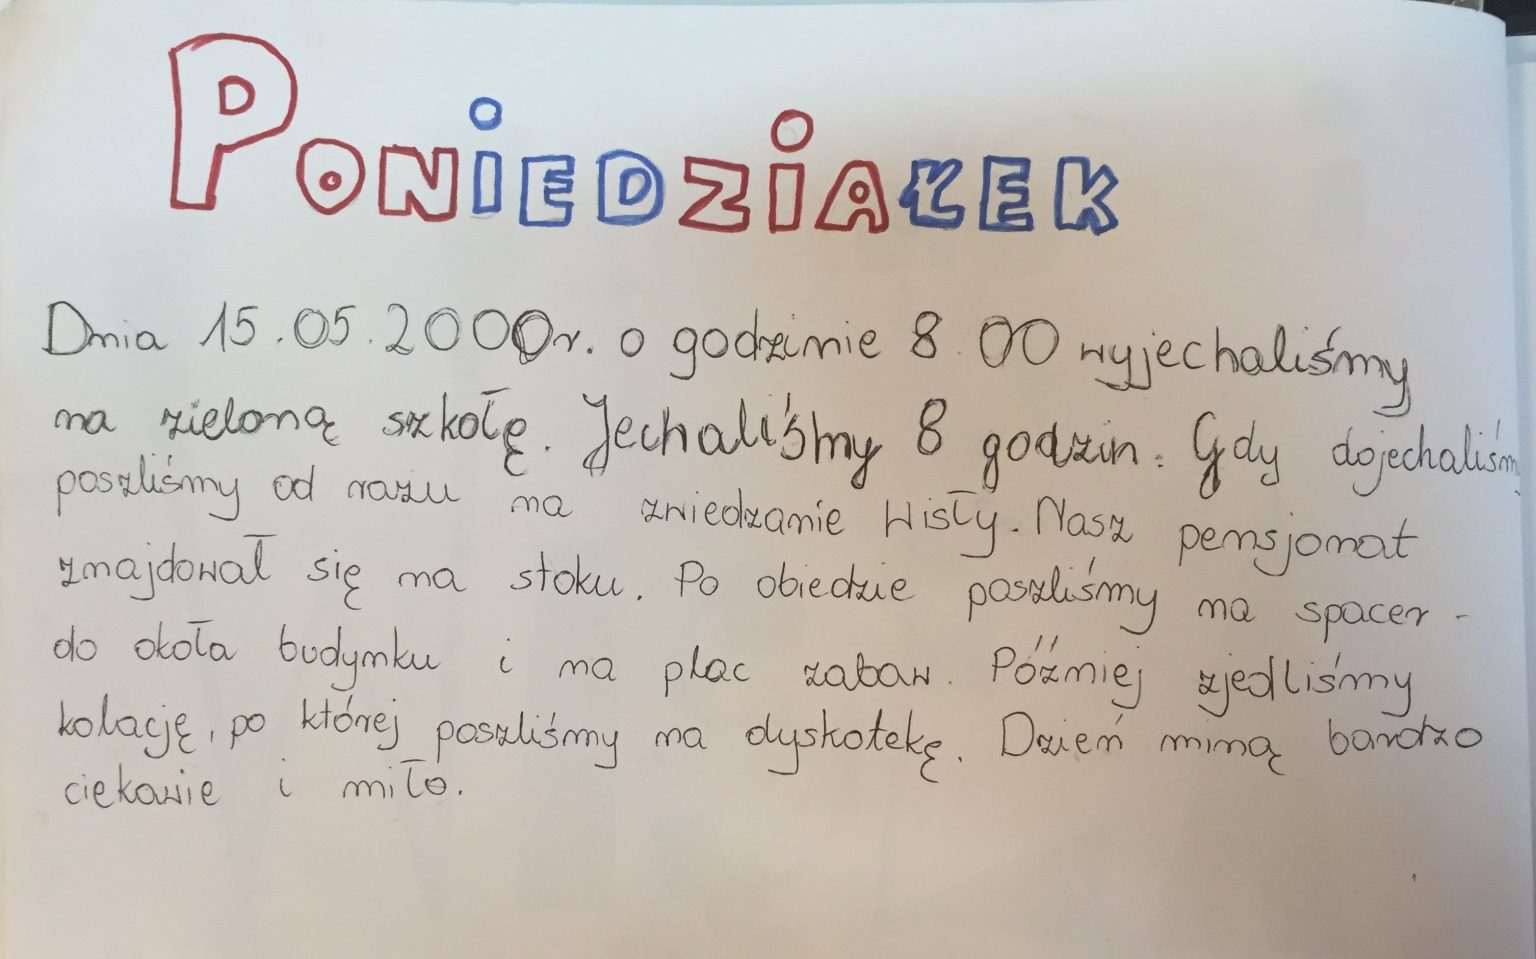 PONIEDZIAŁEK
Dnia 15.05.2000r. o godzinie 8.00 wyjechaliśmy
na zieloną szkołę. Jechaliśmy 8 godzin. Gdy dojechaliśmy
poszliśmy od razu na zwiedzanie Wisły. Nasz pensjonat
znajdował się na stoku. Po obiedzie poszliśmy na spacer -
do okoła budynku i na plac zabaw. Później zjedliśmy
kolację, po której poszliśmy na dyskotekę. Dzień miną bardzo
ciekawie i miło.